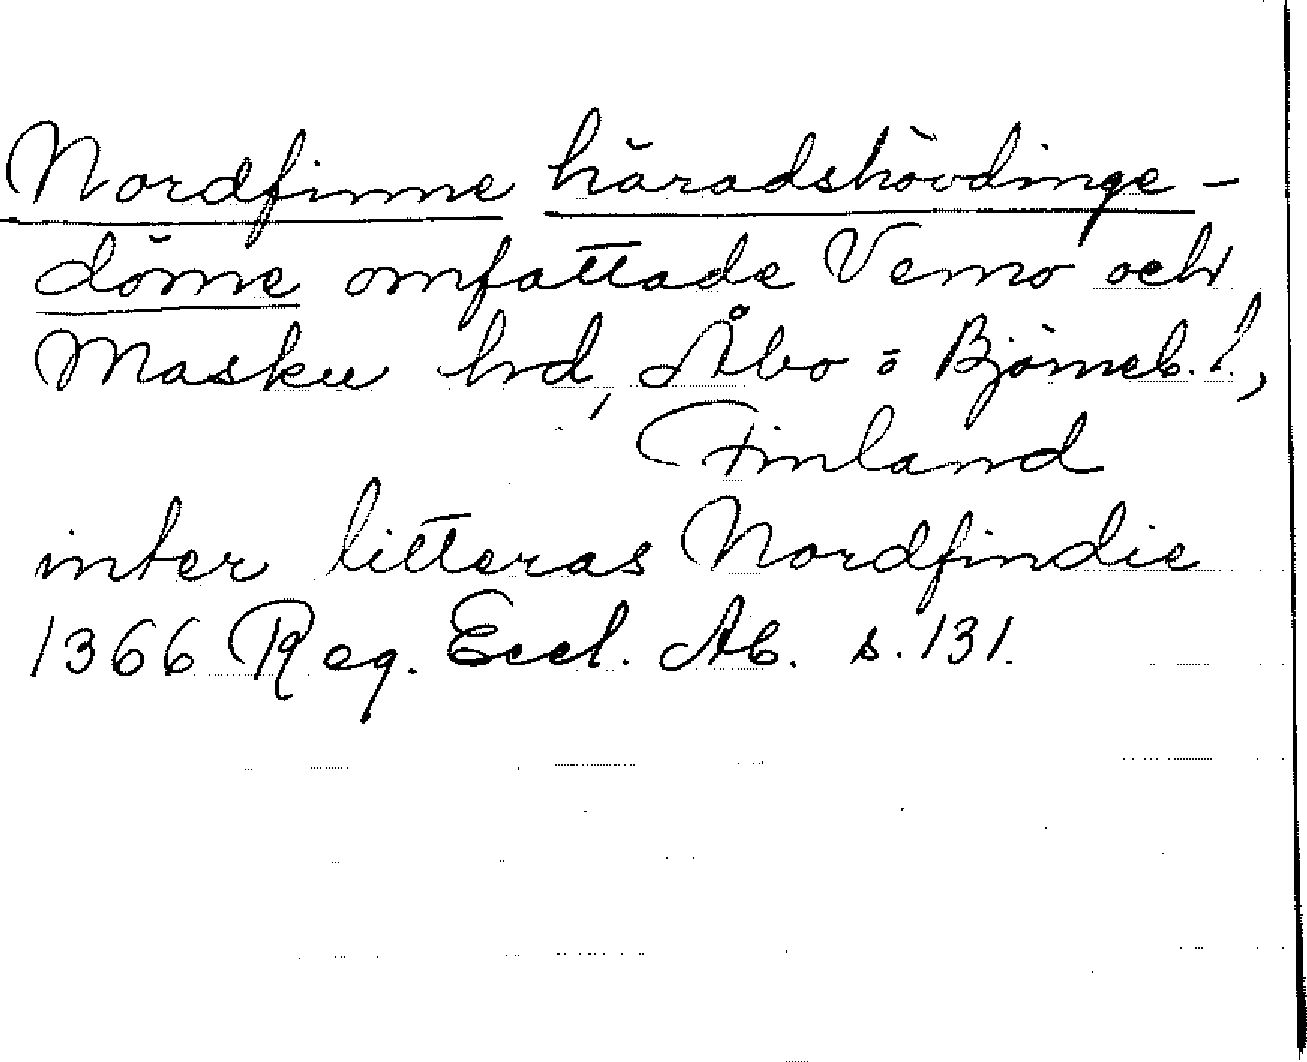 Nordfinne häradshövdinge-
döme omfattade Vemo och
Masku hd, Åbo o Björneb. l.,
Finland
inter litteras Nordfindie
1366 Reg. Eccl. Ab. s. 131.